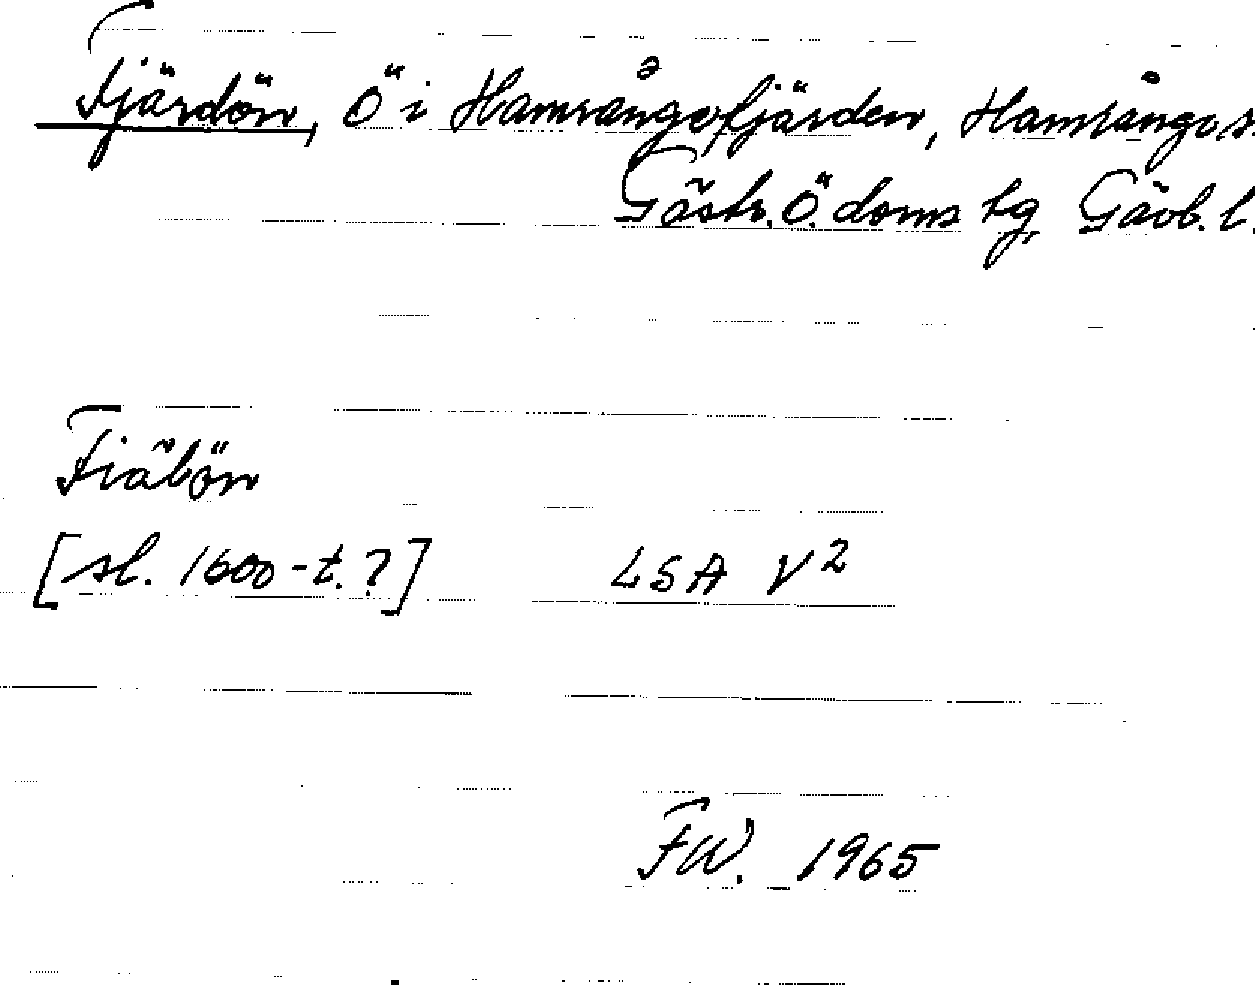 Fjärdön, Ö i Hamrångefjärden, Hamrånge s.
Gästr. Ö. doms tg, Gävb. l.
Fiäbön
[sl. 1600-t.?] LSA V2
FW. 1965